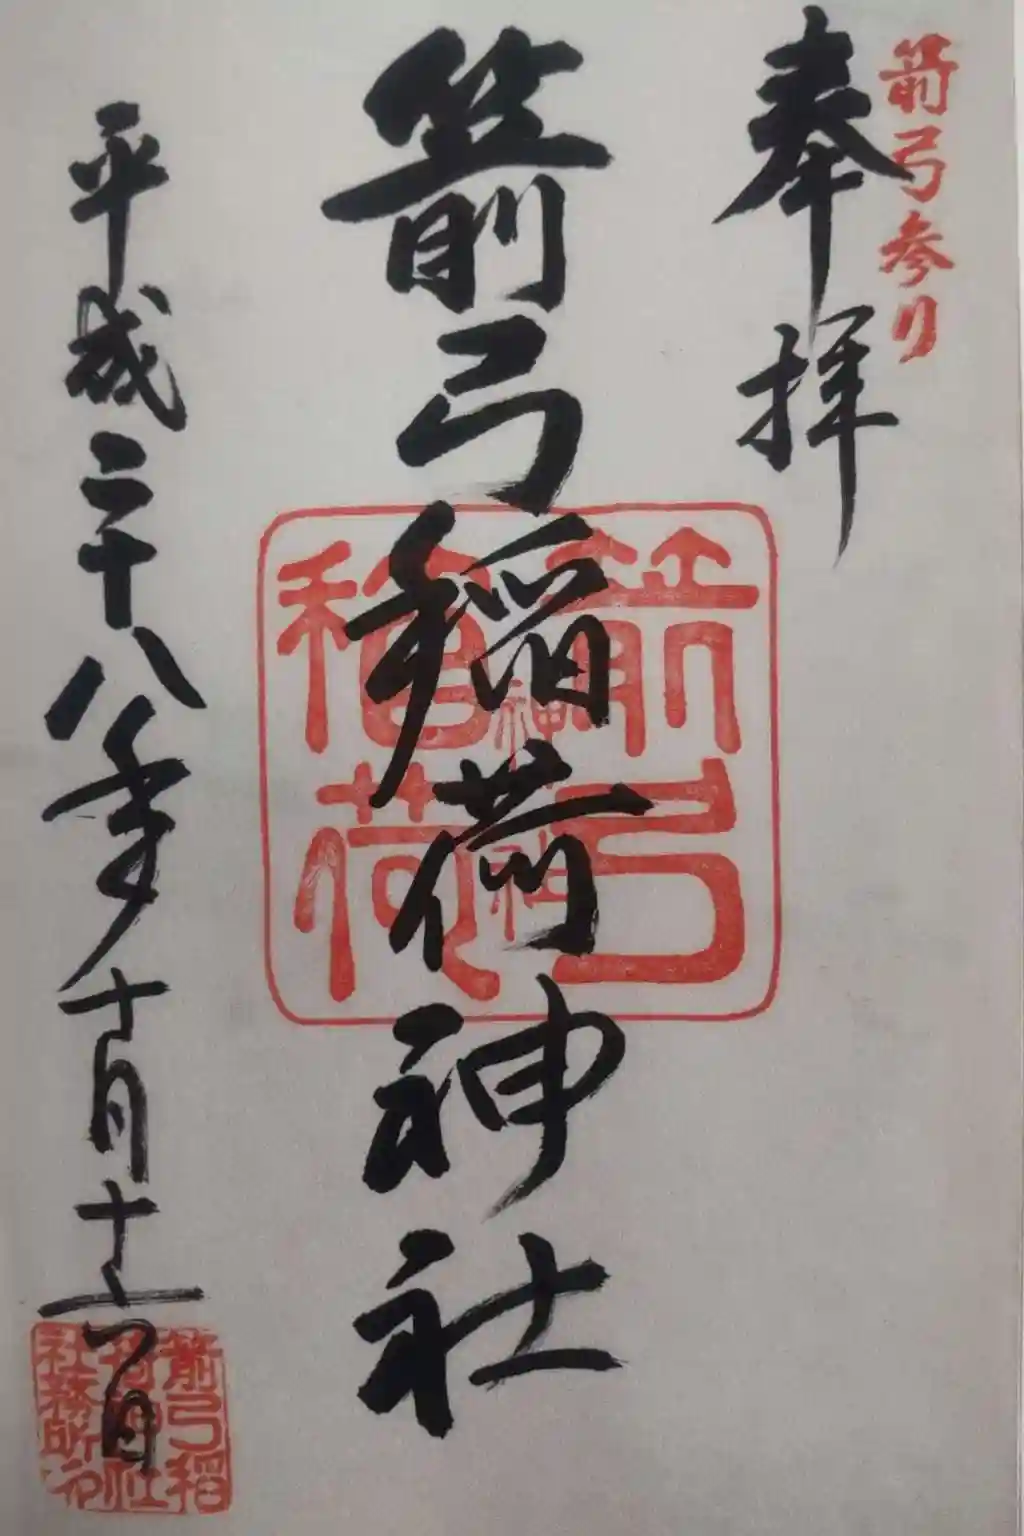 箭弓参り
奉拝
箭弓稲荷神社
箭弓稲荷神社
平成二十八年十月十一日
箭弓稲荷神社社務所印